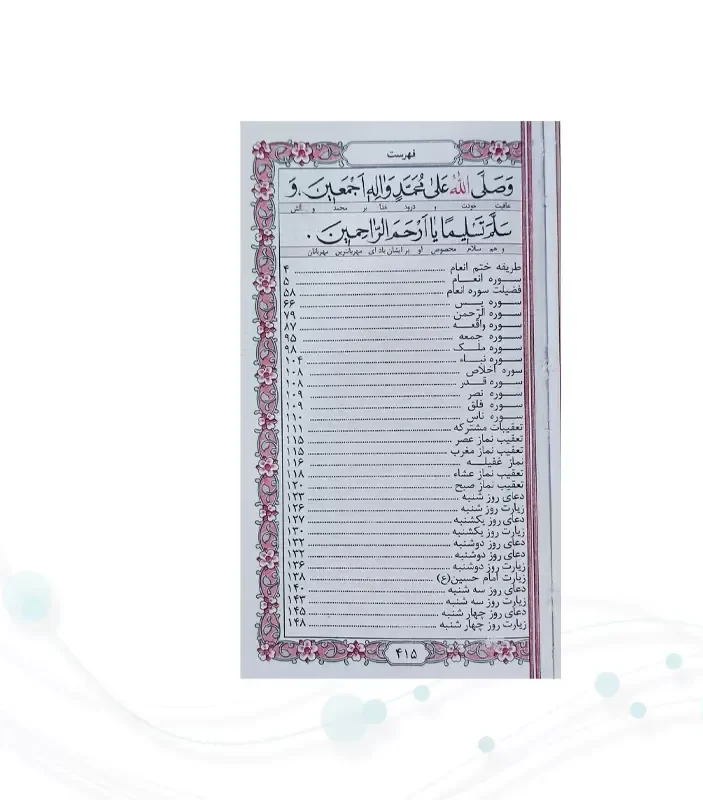 فهرست
وَصَلَّی اللهُ عَلیٰ مُحَمَّدٍ وَالِهِ اَجْمَعینَ، وَ
عاقبت خودت و درود خدا بر محمد و آلش
سَلَّمَ تَسْلیمًا یا اَرْحَمَ الرّاحِمینَ.
و هم سلام مخصوص او بر ایشان باد ای مهربانترین مهربانان
طریقه ختم انعام ........ ۴
سوره انعام ........ ۵
فضیلت سوره انعام ........ ۵۸
سوره یس ........ ۶۶
سوره الرّحمن ........ ۷۹
سوره واقعه ........ ۸۷
سوره جمعه ........ ۹۵
سوره ملک ........ ۹۸
سوره نباء ........ ۱۰۴
سوره اخلاص ........ ۱۰۸
سوره قدر ........ ۱۰۸
سوره نصر ........ ۱۰۹
سوره فلق ........ ۱۰۹
سوره ناس ........ ۱۱۰
تعقیبات مشترکه ........ ۱۱۱
تعقیب نماز عصر ........ ۱۱۵
تعقیب نماز مغرب ........ ۱۱۵
نماز غفیله ........ ۱۱۶
تعقیب نماز عشاء ........ ۱۱۸
تعقیب نماز صبح ........ ۱۲۰
دعای روز شنبه ........ ۱۲۳
زیارت روز شنبه ........ ۱۲۶
دعای روز یکشنبه ........ ۱۲۷
زیارت روز یکشنبه ........ ۱۳۰
دعای روز دوشنبه ........ ۱۳۲
دعای روز دوشنبه ........ ۱۳۲
زیارت روز دوشنبه ........ ۱۳۶
زیارت امام حسین(ع) ........ ۱۳۸
دعای روز سه شنبه ........ ۱۴۰
زیارت روز سه شنبه ........ ۱۴۳
دعای روز چهار شنبه ........ ۱۴۵
زیارت روز چهار شنبه ........ ۱۴۸
۴۱۵